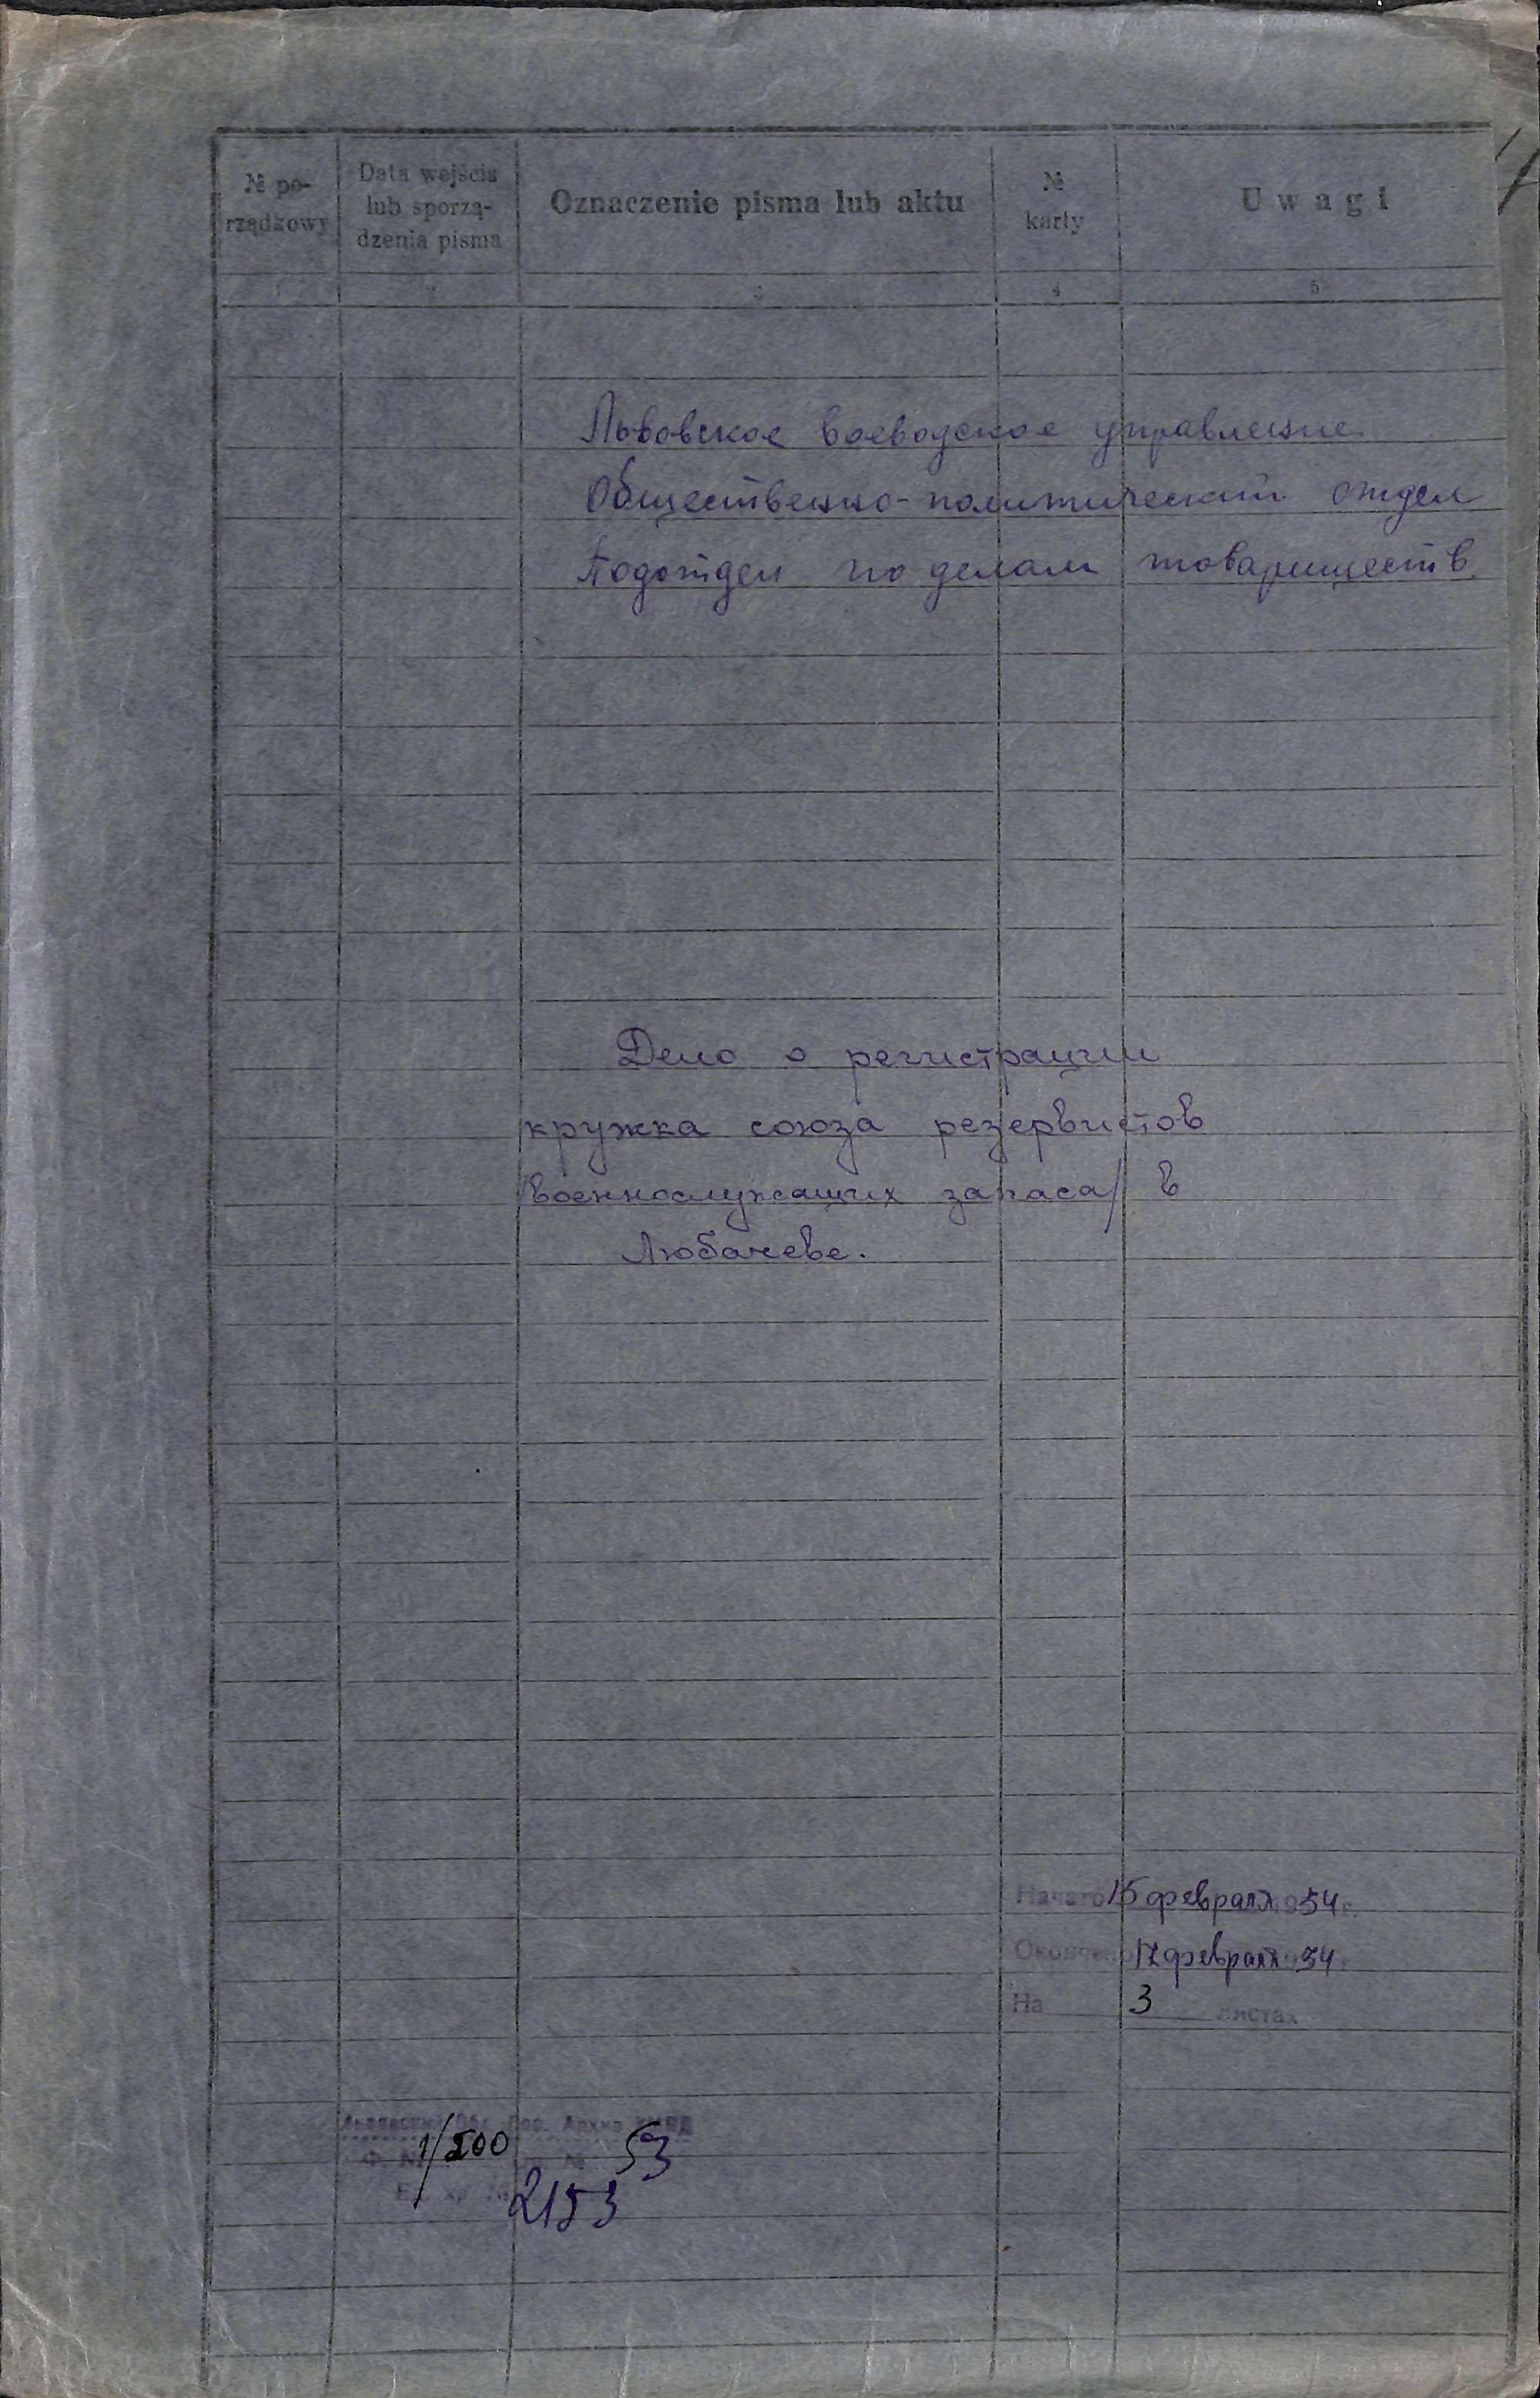 № po-
rządkowy
Data wejścia
lub sporzą-
dzenia pisma
Oznaczenie pisma lub aktu
№
karty
Uwagi
1 2 3 4 5
Львовское воеводское управление
Общественно-политический отдел
Подотдел по делам товариществ
Дело о регистрации
кружка союза резервистов
/военнослужащих запаса/ в
Любачеве.
Начато 15 февраля 1934 г.
Окончено 17 февраля 1934
На 3 листах
Львовский Обл. Гос. Архив
Ф. № 1/500 № 53
Ед. хр. № 2153